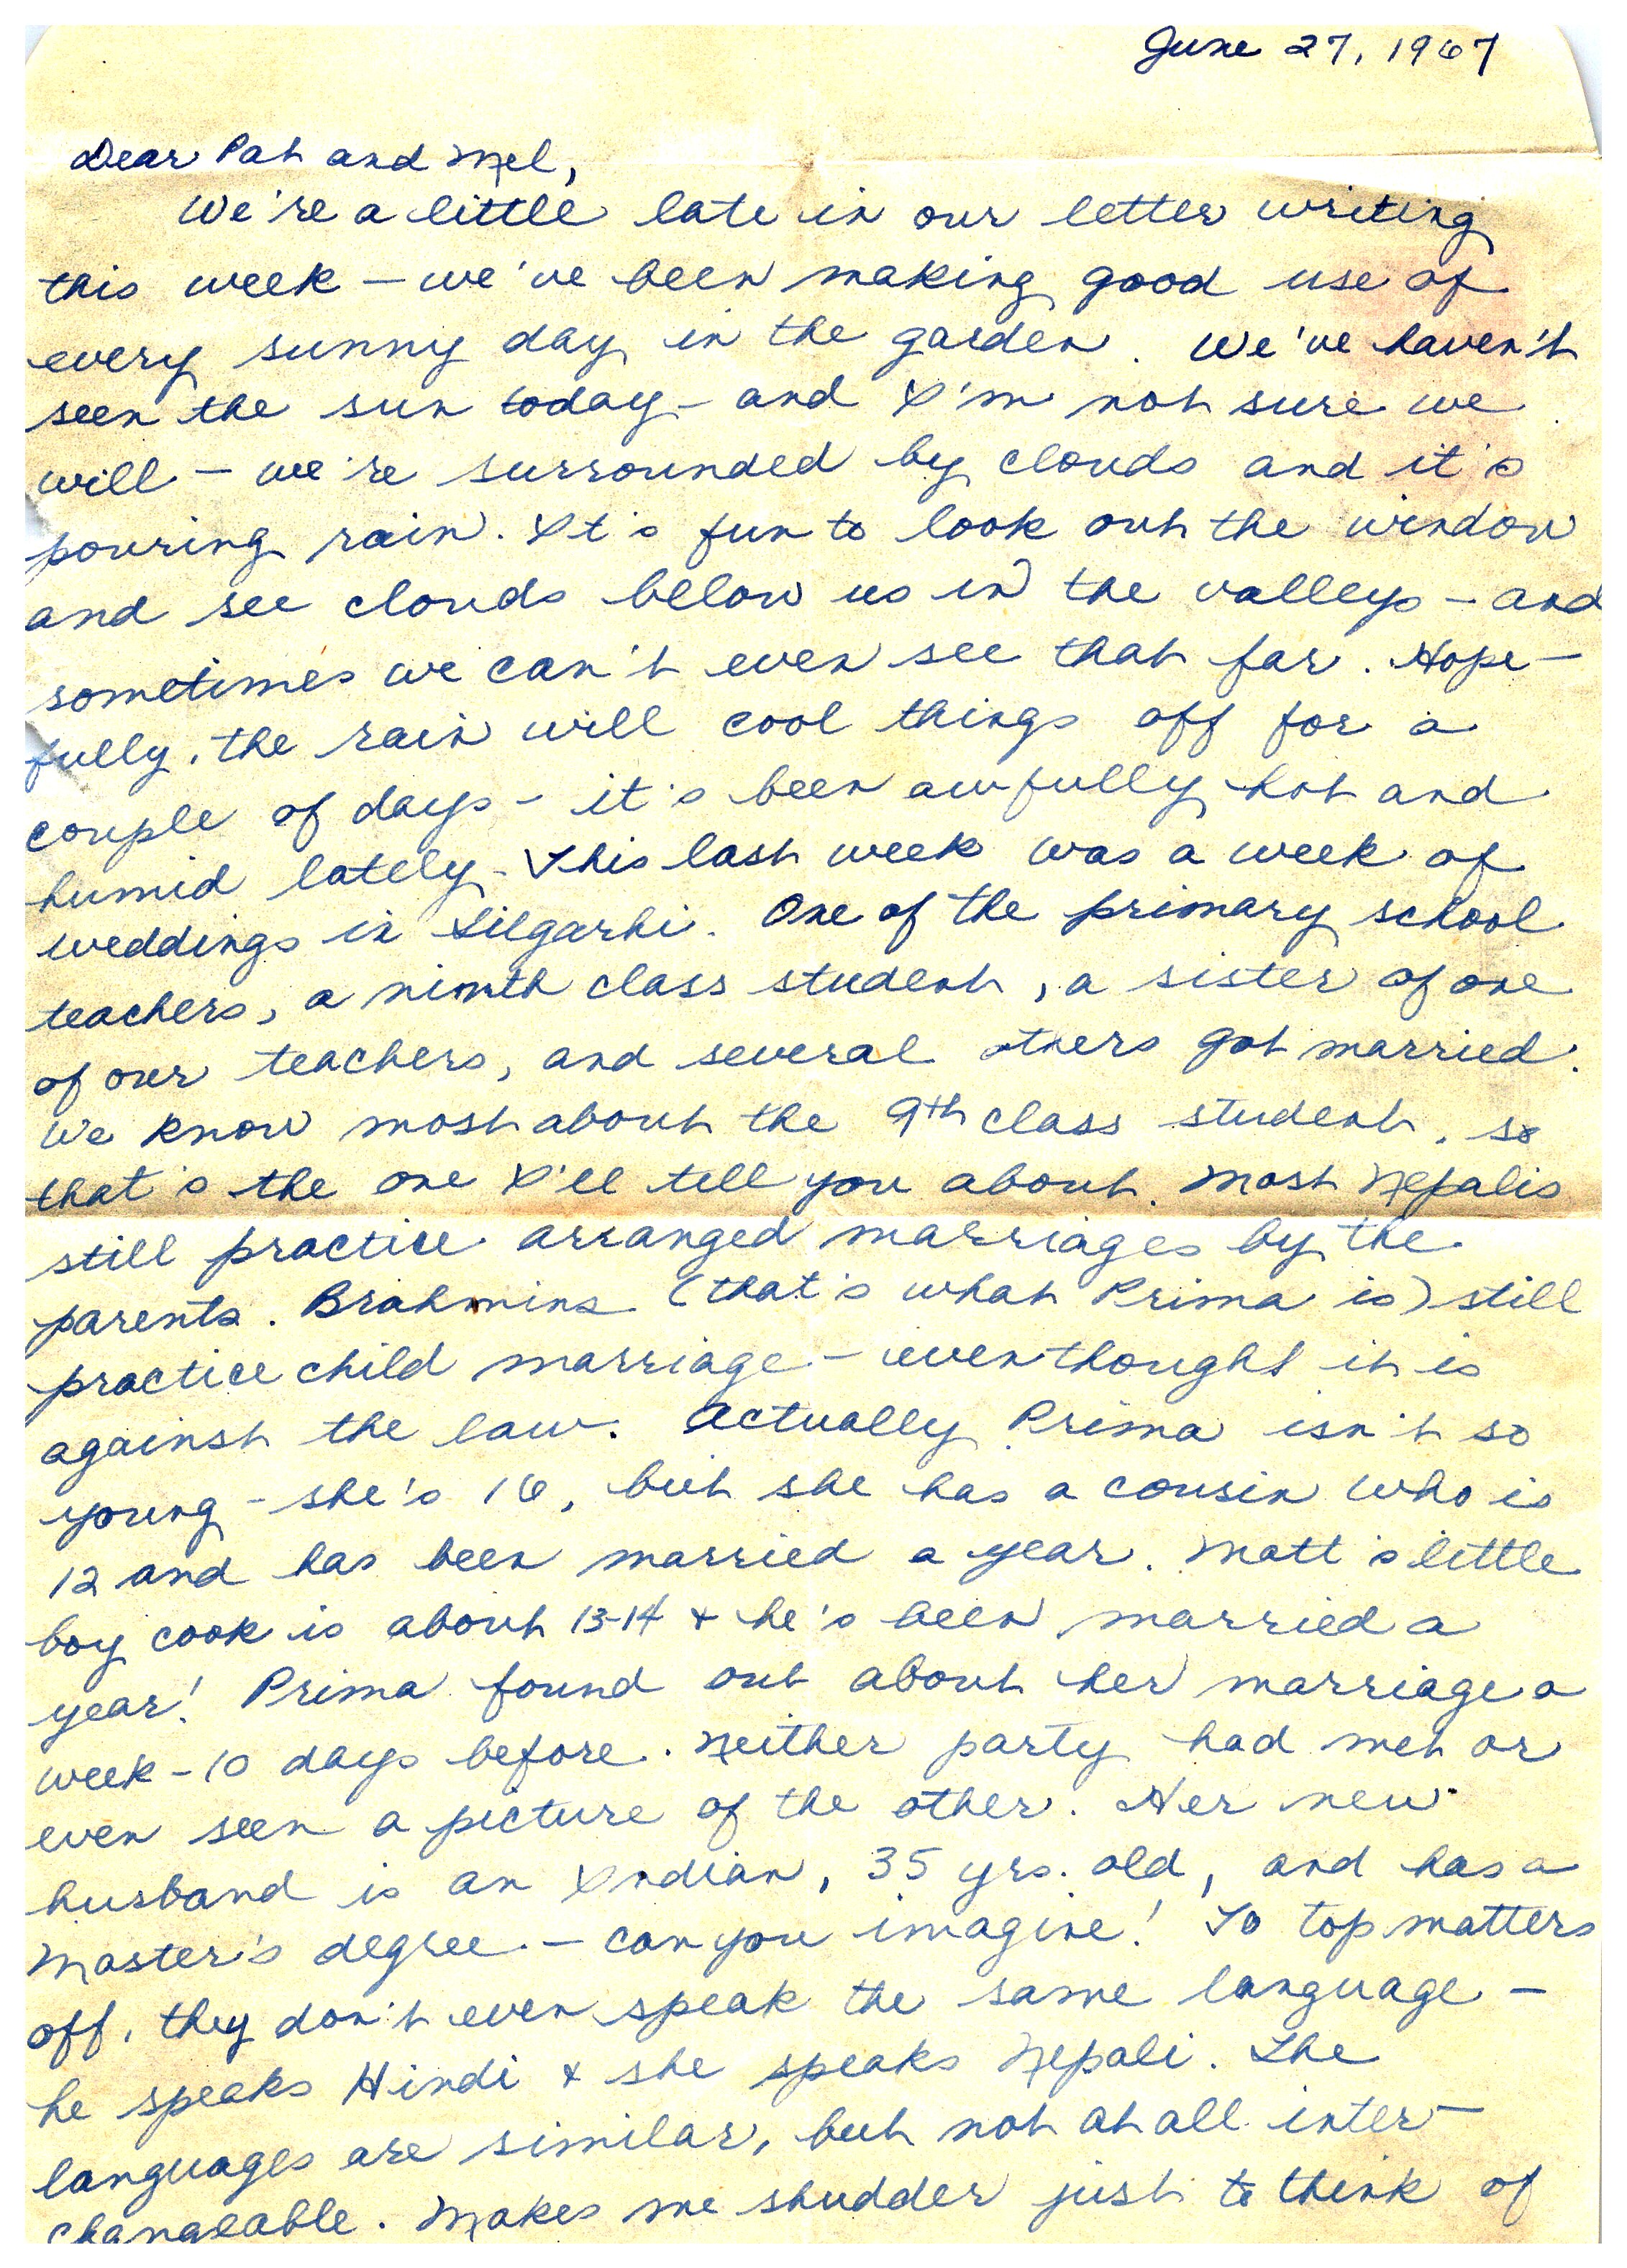 June 27, 1967
Dear Pat and Mel,
We're a little late in our letter writing
this week – we've been making good use of
every sunny day in the garden. We've haven't
seen the sun today – and I'm not sure we
will – we're surrounded by clouds and it's
pouring rain. It's fun to look out the window
and see clouds below us in the valleys – and
sometimes we can't even see that far. Hope-
fully, the rain will cool things off for a
couple of days – it's been awfully hot and
humid lately. This last week was a week of
weddings in Silgarhi. One of the primary school
teachers, a ninth class student, a sister of one
of our teachers, and several others got married.
We know most about the 9th class student, so
that's the one I'll tell you about. Most Nepalis
still practice arranged marriages by the
parents. Brahmins (that's what Prima is) still
practice child marriage – even thought it is
against the law. Actually Prima isn't so
young – she's 16, but she has a cousin who is
12 and has been married a year. Matt's little
boy cook is about 13-14 + he's been married a
year! Prima found out about her marriage a
week – 10 days before. Neither party had met or
even seen a picture of the other. Her new
husband is an Indian, 35 yrs. old, and has a
Master's degree – can you imagine! To top matters
off, they don't even speak the same language –
he speaks Hindi + she speaks Nepali. The
languages are similar, but not at all inter-
changeable. Makes me shudder just to think of